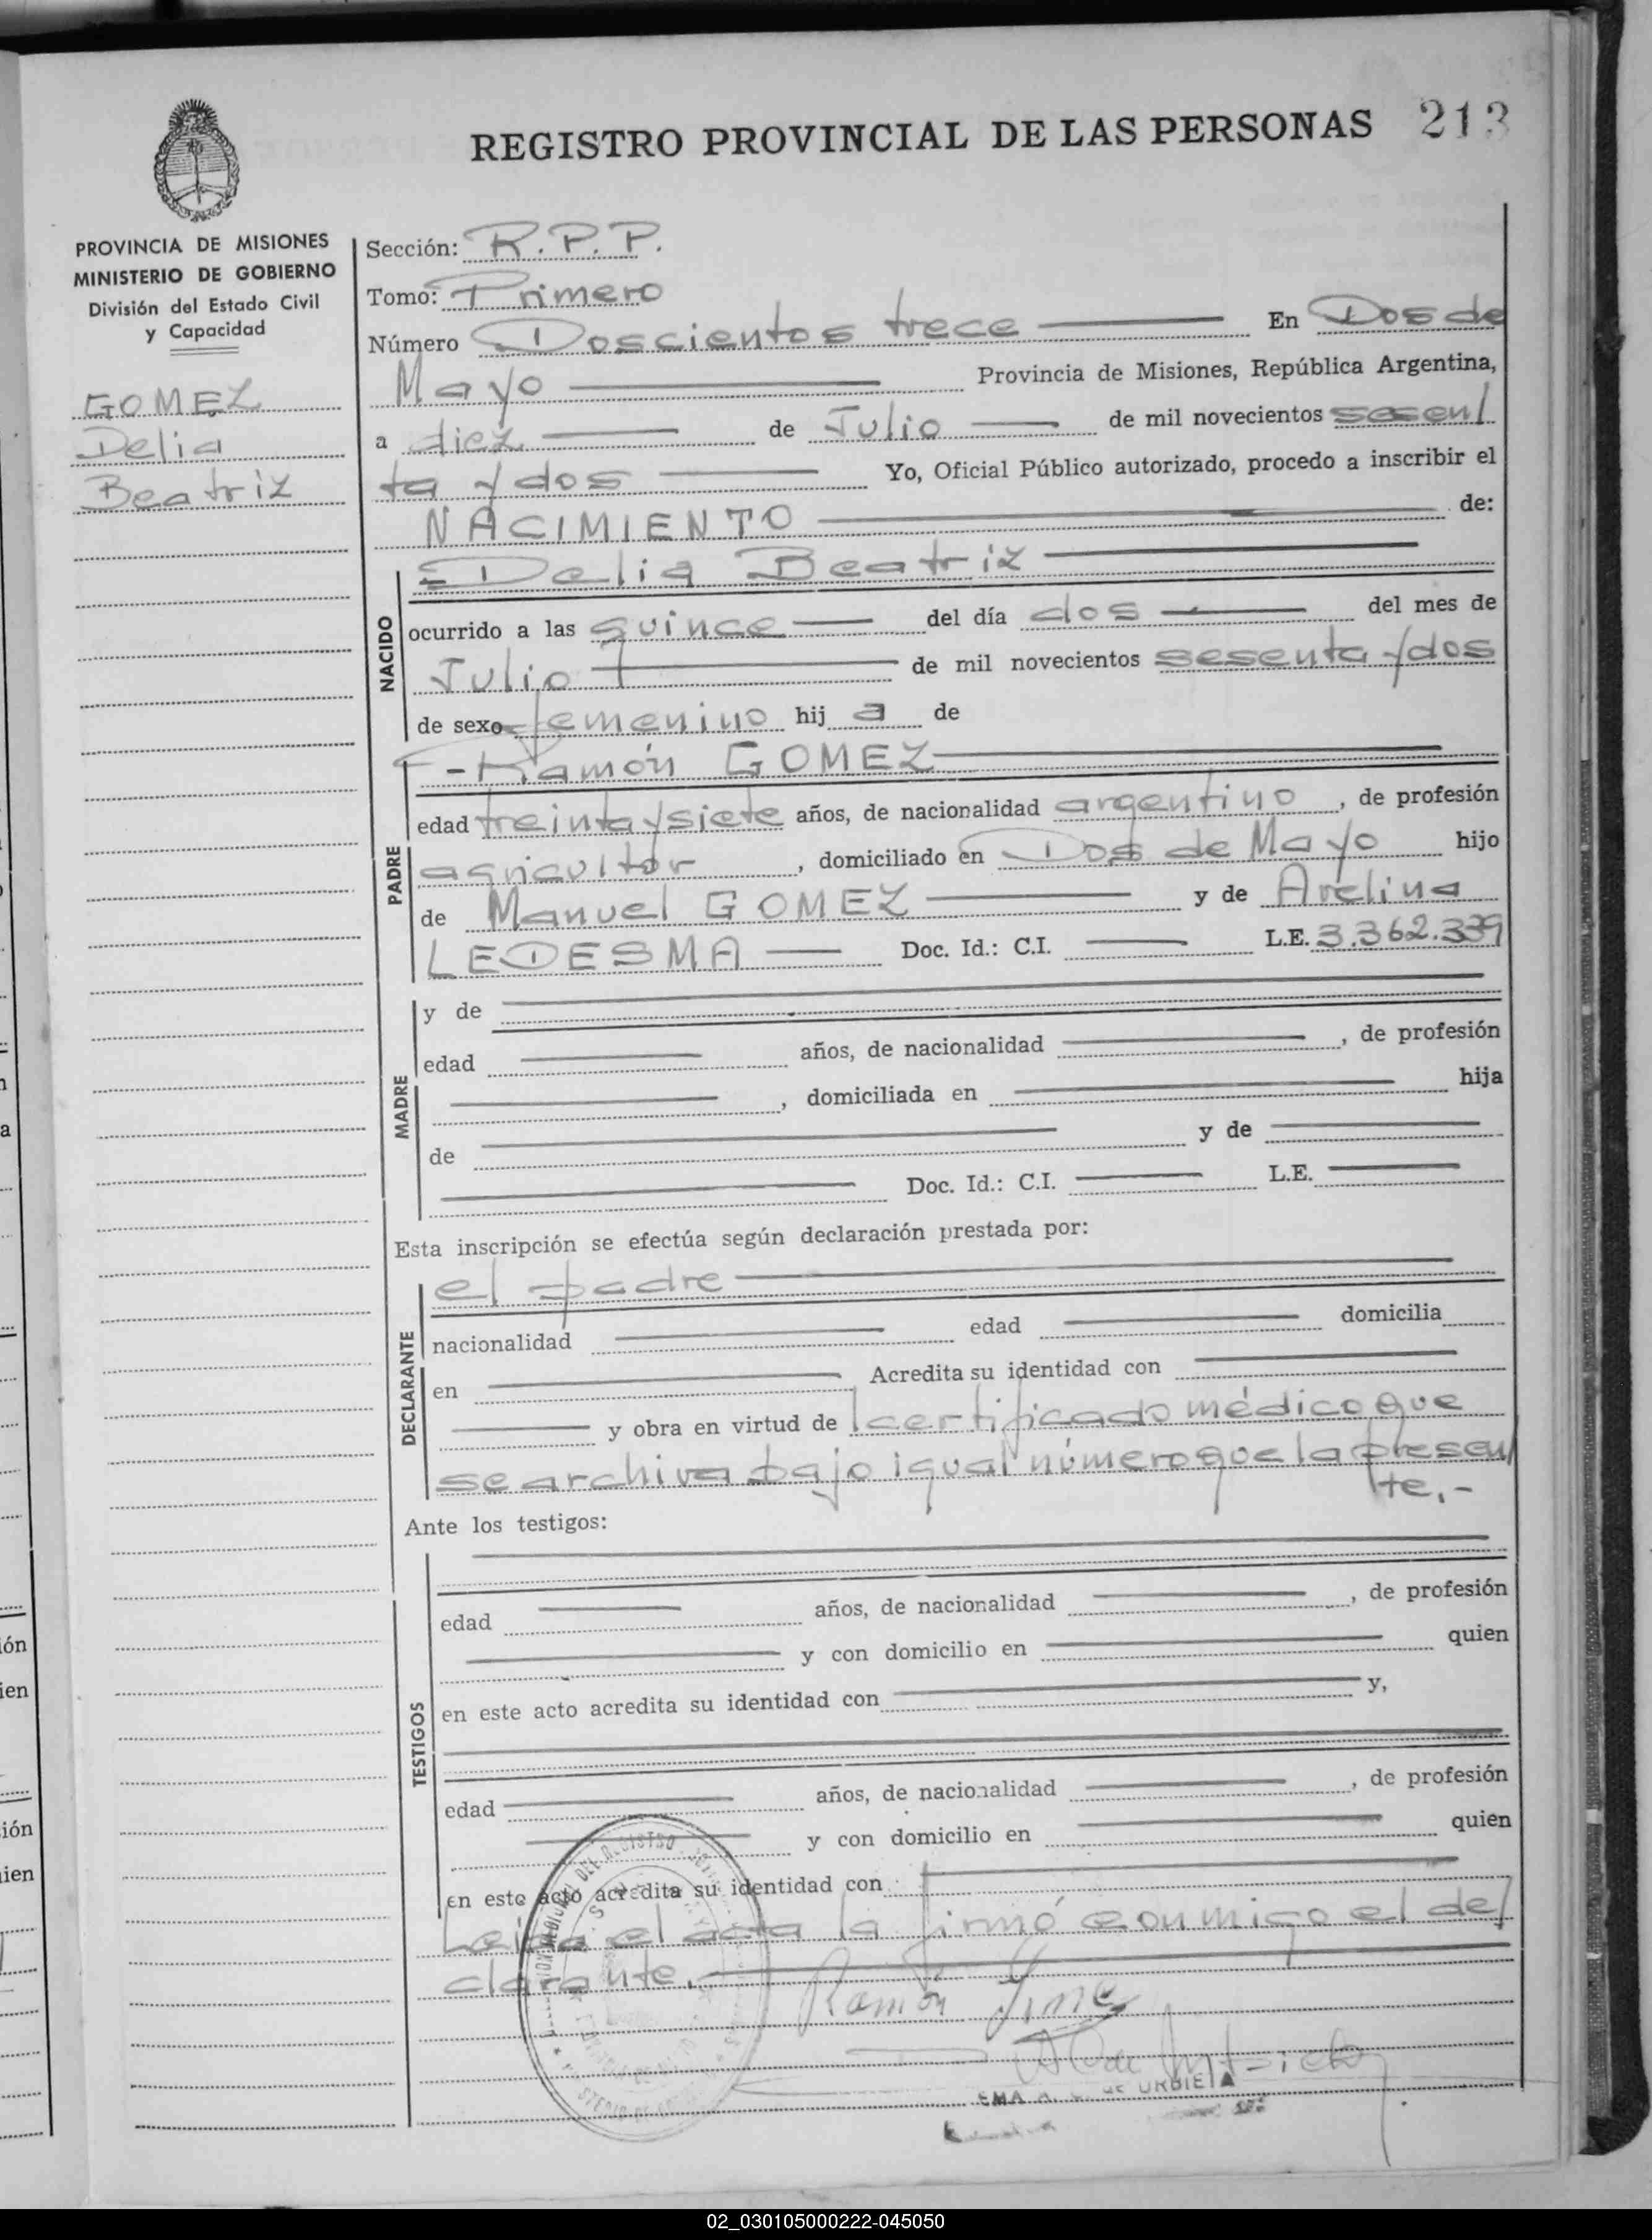 REGISTRO PROVINCIAL DE LAS PERSONAS 213
PROVINCIA DE MISIONES
MINISTERIO DE GOBIERNO
División del Estado Civil
y Capacidad
GOMEZ
Delia
Beatriz
Sección: R.P.P.
Tomo: Primero
Número Doscientos trece En Dos de
Mayo Provincia de Misiones, República Argentina,
a diez de Julio de mil novecientos sesen/
ta y dos Yo, Oficial Público autorizado, procedo a inscribir el
NACIMIENTO de:
NACIDO
Delia Beatriz
ocurrido a las quince del día dos del mes de
Julio de mil novecientos sesenta y dos
de sexo femenino hij a de
PADRE
-Ramón GOMEZ
edad treinta y siete años, de nacionalidad argentino, de profesión
agricultor, domiciliado en Dos de Mayo hijo
de Manuel GOMEZ y de Avelina
LEDESMA Doc. Id.: C.I. L.E. 3.362.339
MADRE
y de
edad años, de nacionalidad , de profesión
, domiciliada en hija
de y de
Doc. Id.: C.I. L.E.
Esta inscripción se efectúa según declaración prestada por:
DECLARANTE
el padre
nacionalidad edad domicilia
en Acredita su identidad con
y obra en virtud de l certificado médico que
se archiva bajo igual número que la presen/
te.-
Ante los testigos:
TESTIGOS
edad años, de nacionalidad , de profesión
y con domicilio en quien
en este acto acredita su identidad con y,
edad años, de nacionalidad , de profesión
y con domicilio en quien
en este acto acredita su identidad con
Leída el acta la firmó conmigo el de/
clarante.
Ramón
URBIETA
02_030105000222-045050